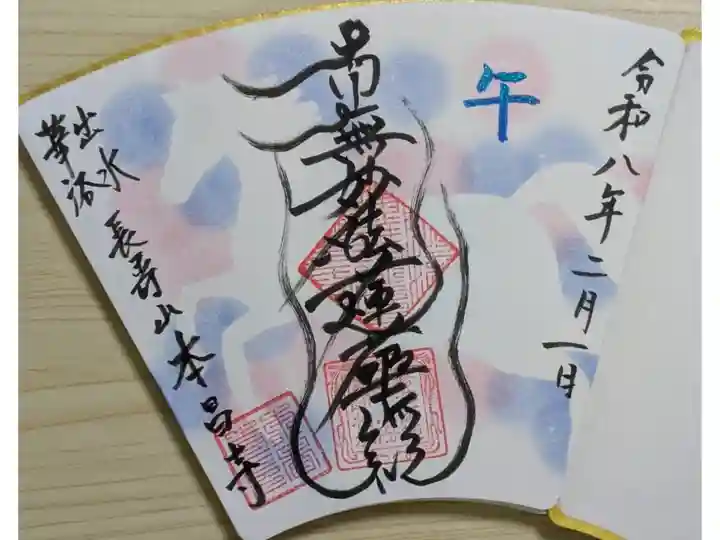 令和八年二月一日
午
南無妙法蓮華経
華洛
出水
長寿山本昌寺